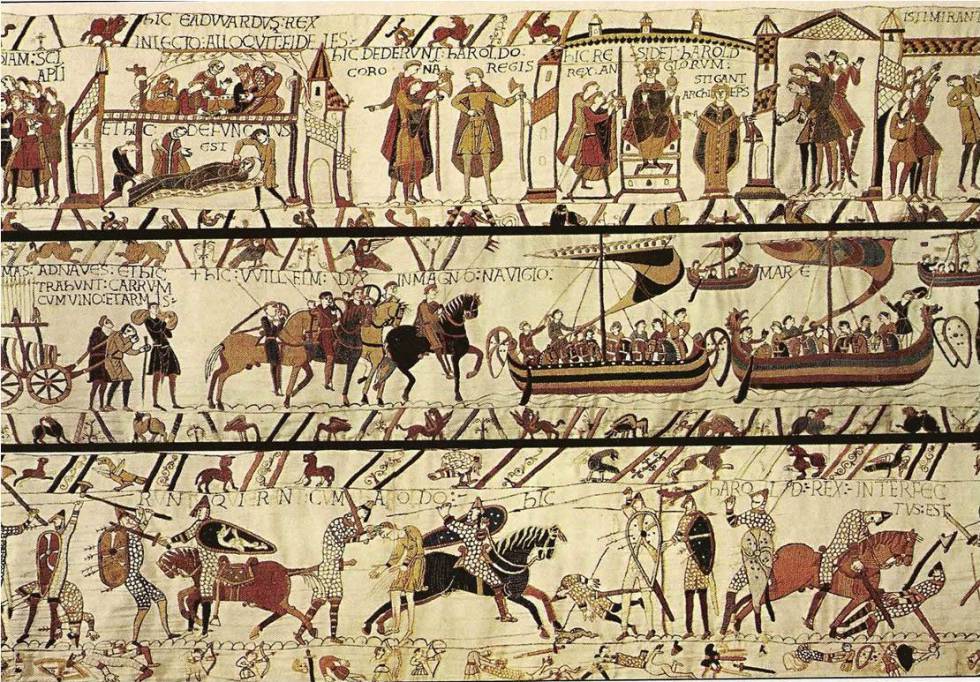 HIC EADVVARDVS:REX
INLECTO:ALLOQVIT:FIDELES:
IAM:SCI
APLI
ET HIC: DEFVNCTVS
EST
HIC DEDERVNT:HAROLDO:
CORO NA REGIS
HIC RE SIDET:HAROLD
REX:AN GLORVM:
STIGANT
ARCHI EPS
ISTI MIRANT
MAS: ADNAVES: ET HIC
TRAHVNT: CARRVM
CVM VINO: ET ARMIS:
+HIC: VVILLELM: DVX IN MAGNO: NAVIGIO:
MAR E
RVNT QVI ERANT: CVM HAROLDO:
HIC HAROLD: REX: INTERFEC
TVS: EST